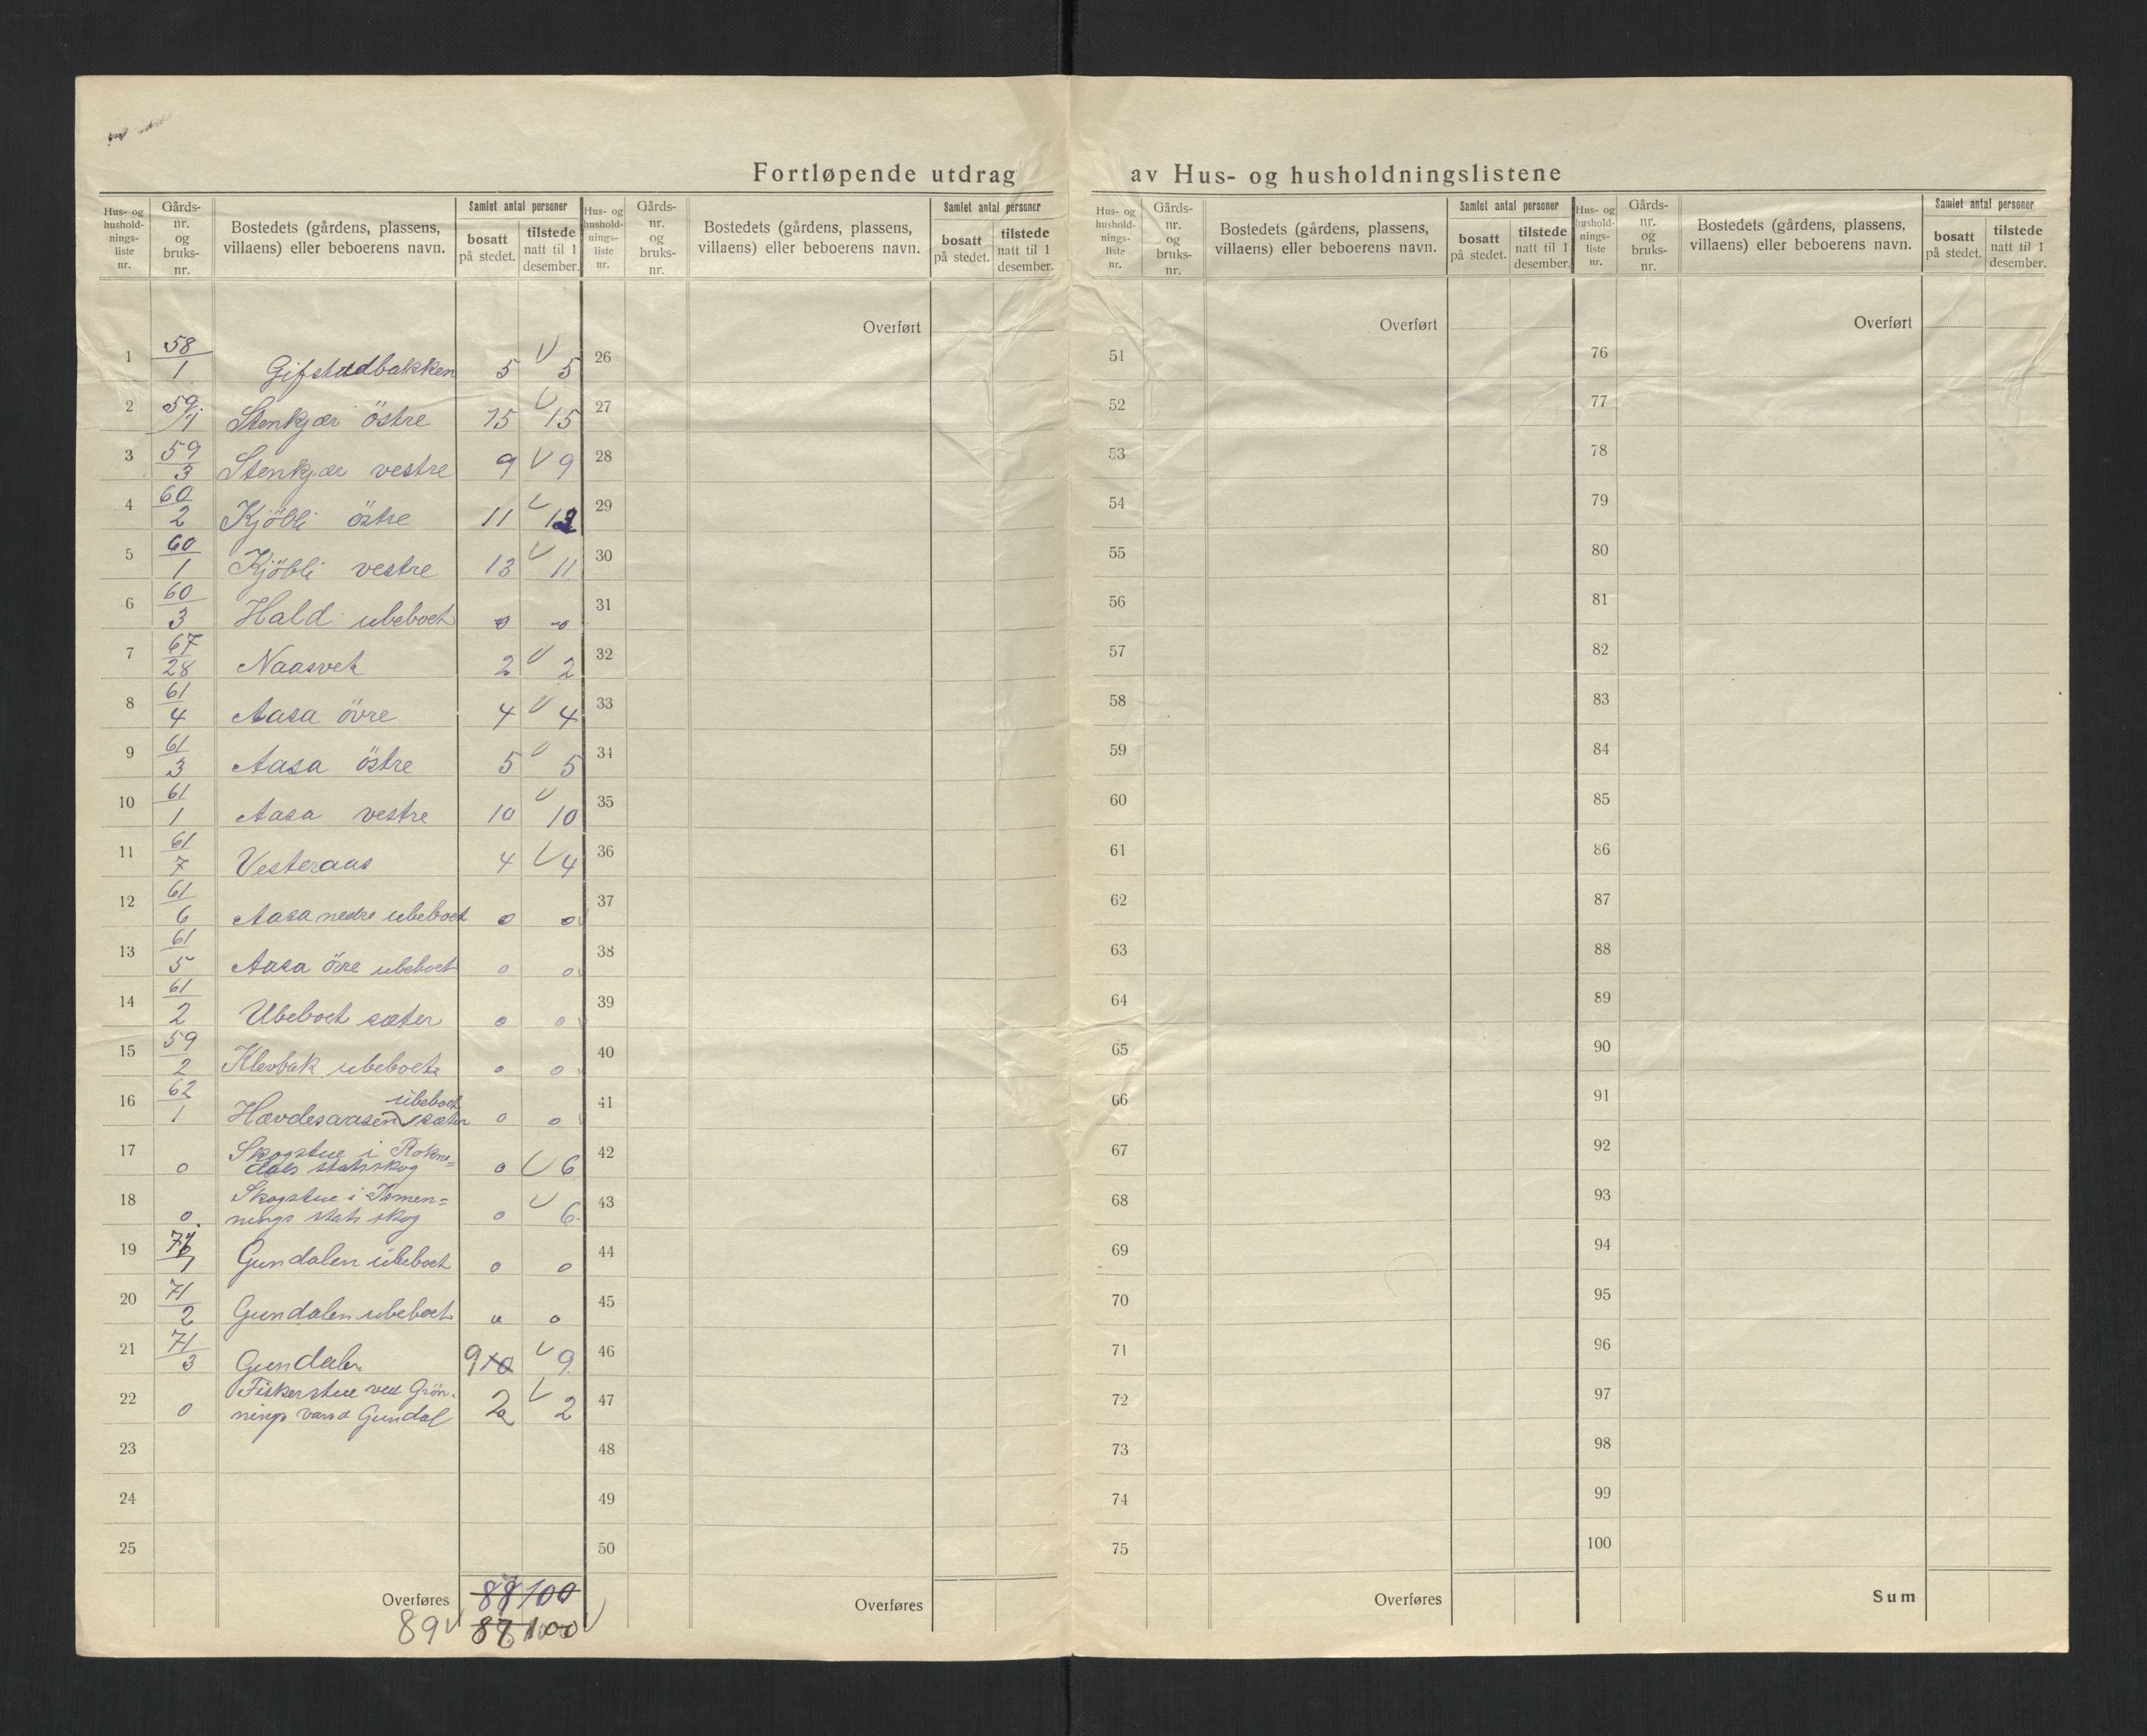 Fortløpende utdrag av Hus- og husholdningslistene
Hus- og hushold- nings- liste nr. | Gårds- nr. og bruks- nr. | Bostedets (gårdens, plassens, villaens) eller beboerens navn. | Samlet antal personer | bosatt på stedet. | tilstede natt til 1 desember.
1 58/1 Gifstadbakken 5 V 5
2 59/1 Stenkjær östre 15 V 15
3 59/3 Stenkjær vestre 9 V 9
4 60/2 Kjöbli östre 11 V 12
5 60/1 Kjöbli vestre 13 V 11
6 60/3 Hald ubeboet 0 0
7 67/28 Naasvet 2 V 2
8 61/4 Aasa övre 4 V 4
9 61/3 Aasa östre 5 V 5
10 61/1 Aasa vestre 10 V 10
11 61/7 Vesteraas 4 V 4
12 61/6 Aasa nedre ubeboet 0 0
13 61/5 Aasa övre ubeboet 0 0
14 61/2 Ubeboet sæter 0 0
15 59/2 Klevbak ubeboet 0 0
16 62/1 Hævdesaasen ubeboet sæter 0 0
17 0 Skogstue i
dals statsskog 0 V 6
18 0 Skogstue i
nings stats skog 0 V 6
19 Gundalen ubeboet 0 0
20 71/2 Gundalen ubeboet 0 0
21 71/3 Gundalen 9 10 V 9
22 0 Fiskerstue ved Grön-
nings vand Gundal 2 V 2
23
24
25
Overføres 100
89 V 87 100 V
Hus- og hushold- nings- liste nr. | Gårds- nr. og bruks- nr. | Bostedets (gårdens, plassens, villaens) eller beboerens navn. | Samlet antal personer | bosatt på stedet. | tilstede natt til 1 desember.
Overført
26
27
28
29
30
31
32
33
34
35
36
37
38
39
40
41
42
43
44
45
46
47
48
49
50
Overføres
Hus- og hushold- nings- liste nr. | Gårds- nr. og bruks- nr. | Bostedets (gårdens, plassens, villaens) eller beboerens navn. | Samlet antal personer | bosatt på stedet. | tilstede natt til 1 desember.
Overført
51
52
53
54
55
56
57
58
59
60
61
62
63
64
65
66
67
68
69
70
71
72
73
74
75
Overføres
Hus- og hushold- nings- liste nr. | Gårds- nr. og bruks- nr. | Bostedets (gårdens, plassens, villaens) eller beboerens navn. | Samlet antal personer | bosatt på stedet. | tilstede natt til 1 desember.
Overført
76
77
78
79
80
81
82
83
84
85
86
87
88
89
90
91
92
93
94
95
96
97
98
99
100
Sum